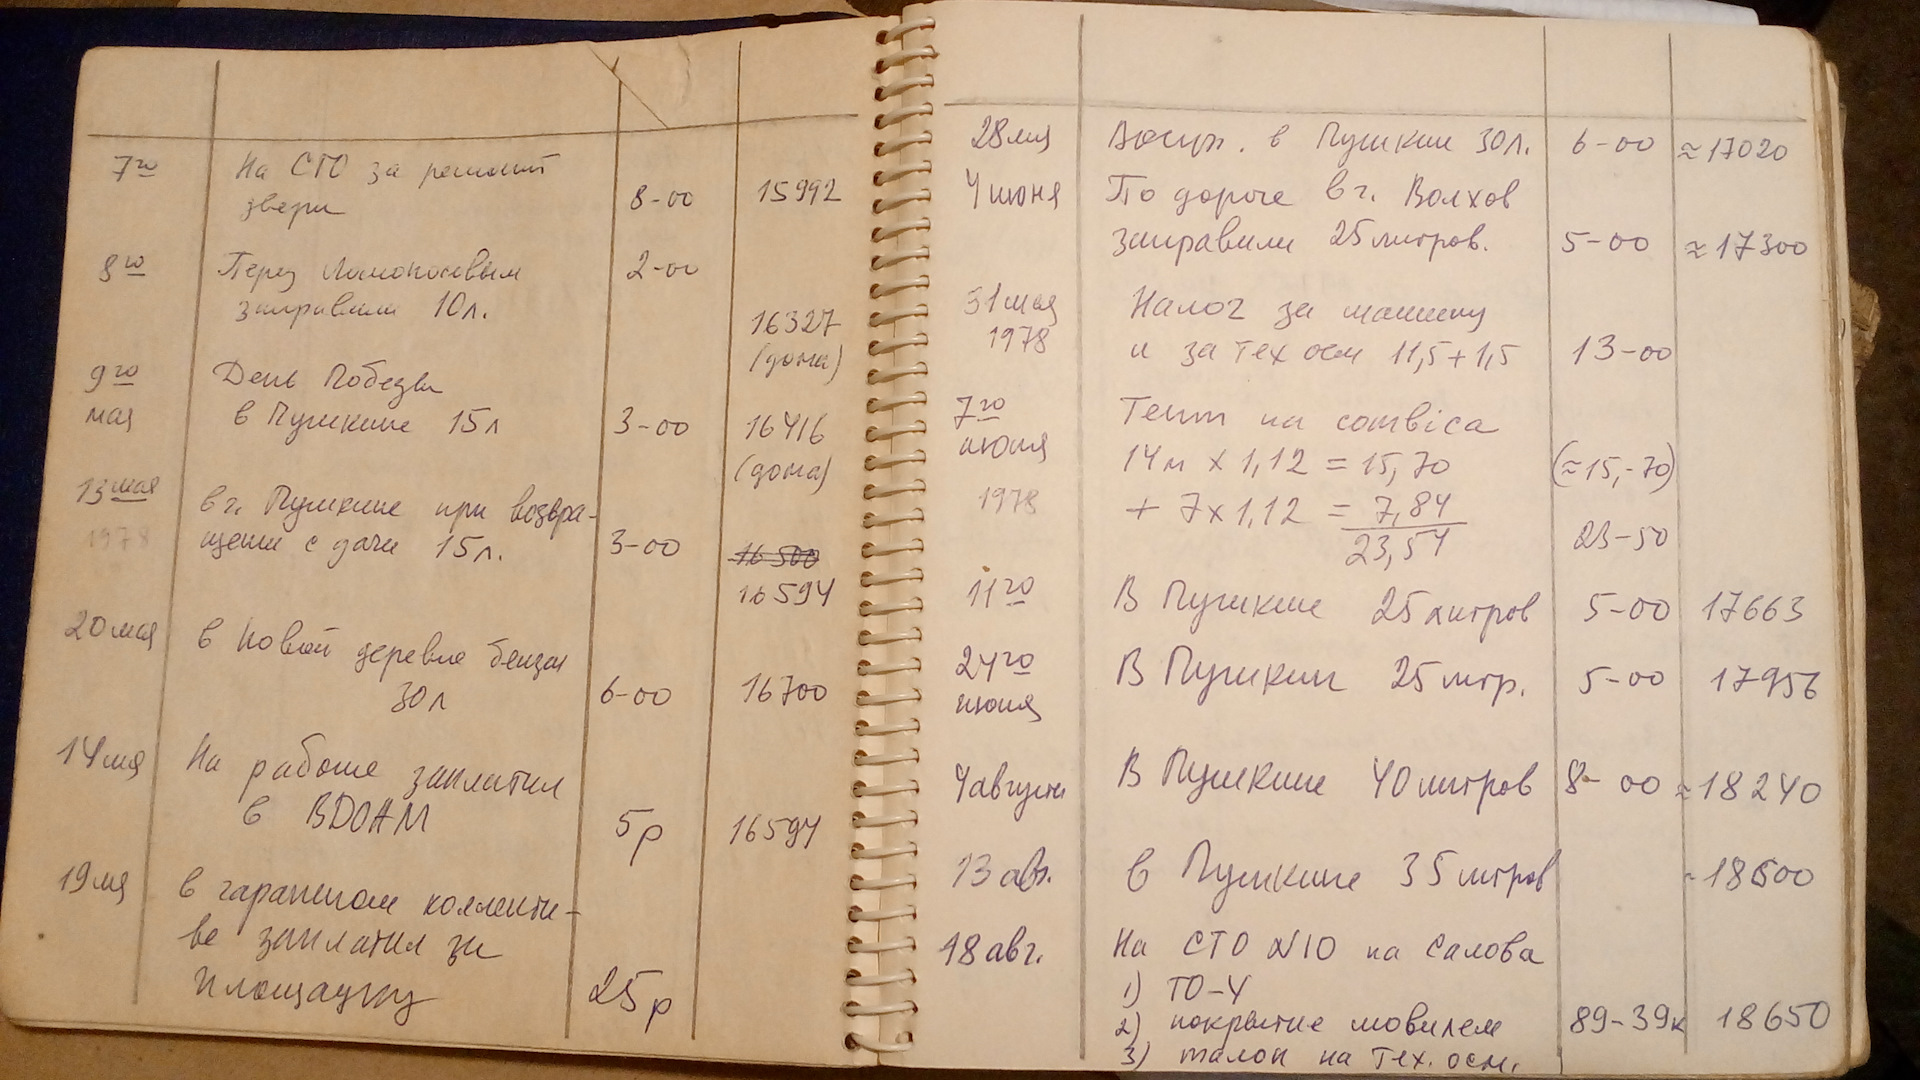 7го На СТО за ремонт
двери 8-00 15992
8го Перед Ломоносовым 2-00
заправили 10л.
16327
(дома)
9го День Победы
мая в Пушкине 15л 3-00 16416
(дома)
13 мая в г. Пушкине при возвра-
1978 щении с дачи 15л. 3-00 16500
16594
20 мая в Новой деревне бензин
30л 6-00 16700
14 мая На работе заплатил
в ВДОАМ 5р 16594
19 мая в гаражном коллекти-
ве заплатил за
площадку 25р
28 мая в Пушкин 30л. 6-00 ≈17020
4 июня По дороге в г. Волхов
заправили 25 литров. 5-00 ≈17300
31 мая Налог за машину
1978 и за тех осм 11,5+1,5 13-00
7го Тент на
июня 14м х 1,12 = 15,70 (≈15,-70)
1978 + 7х1,12 = 7,84
23,54 23-50
11го В Пушкине 25 литров 5-00 17663
24го В Пушкин 25 литр. 5-00 17956
июня
4 августа В Пушкине 40 литров 8-00 ≈18240
13 авг. в Пушкине 35 литров -18500
18 авг. На СТО №10 на Салова
1) ТО-4
2) покрытие мовилем 89-39к 18650
3) талон на тех. осм.